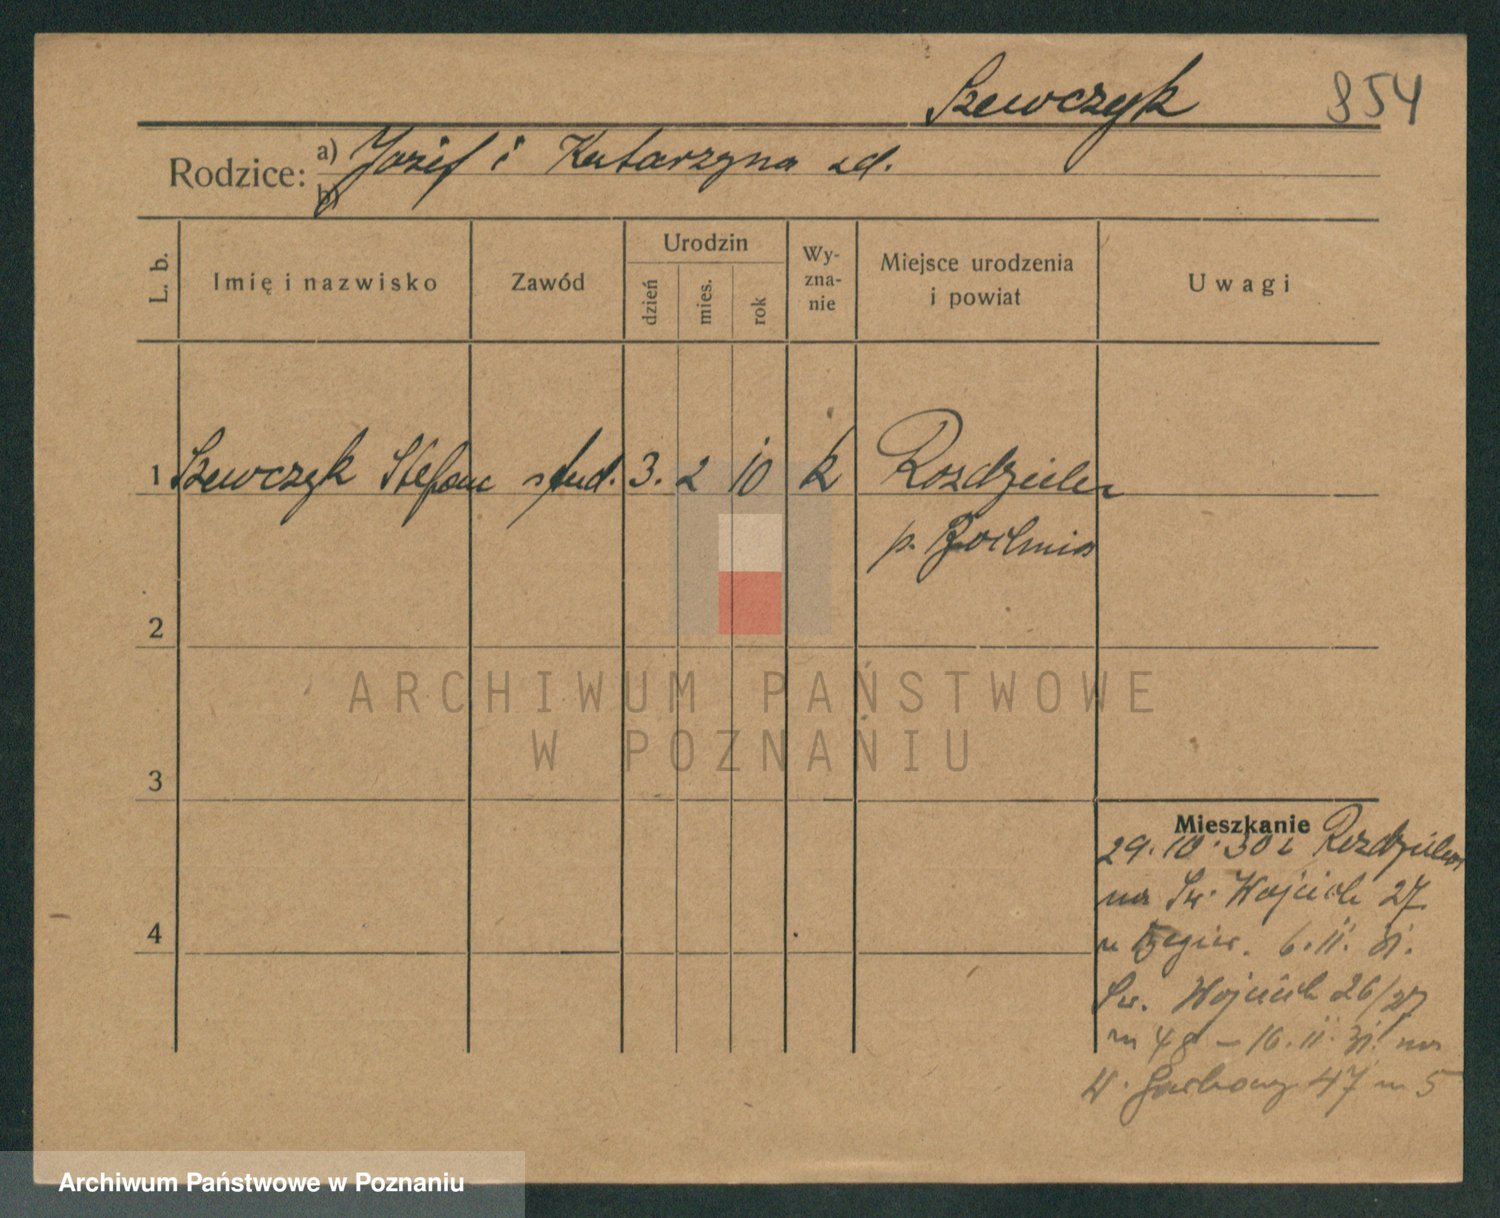 Szewczyk 854
Rodzice: a) Józef i Katarzyna zd.
b)
L. b. Imię i nazwisko Zawód Urodzin dzień mies. rok Wy-zna-nie Miejsce urodzenia i powiat Uwagi
1 Szewczyk Stefan stud. 3. 2 10 k Rozdzielu
p. Bochnia
2
ARCHIWUM PAŃSTWOWE
W POZNANIU
3
Mieszkanie
29.10.30 z Rozdzielu
na Św. Wojciech 27
6.II.31.
Św. Wojciech 26/27
m 48 – 16.II.31. na
4
47 m 5
Archiwum Państwowe w Poznaniu